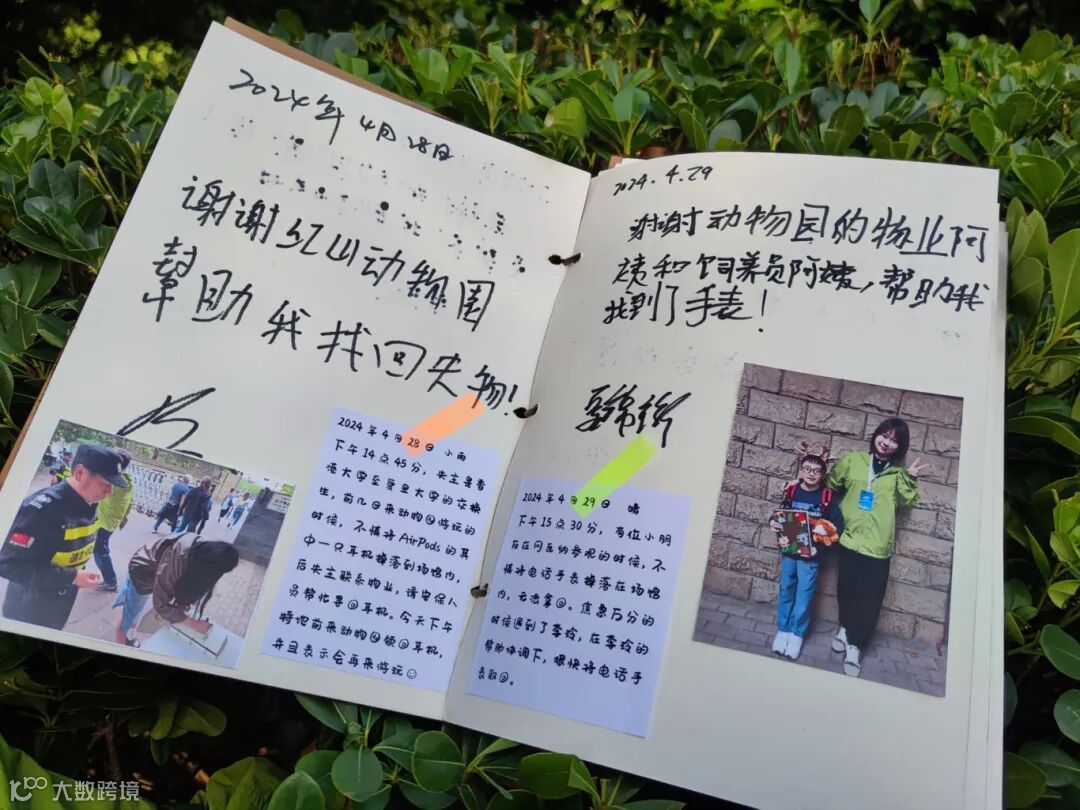 2024年4月28日
谢谢红山动物园
幫助我找回失物!
2024年4月28日 小雨
下午14点45分,失主是香
港大学至曼里大学的交换
生,前几日来动物园游玩的
时候,不慎将AirPods的其
中一只耳机掉落到场馆内,
后失主联系物业,请安保人
员帮忙寻回耳机。今天下午
特地前来动物园领回耳机,
并且表示会再来游玩
2024.4.29
谢谢动物园的物业阿
姨和饲养员阿姨,帮助我
找到了手表!
2024年4月29日 晴
下午15点30分,有位小朋
友在冈瓦纳参观的时候,不
慎将电话手表掉落在场馆
内,无法拿回。焦急万分的
时候遇到了李玲,在李玲的
帮助协调下,很快将电话手
表取回。
大数跨境